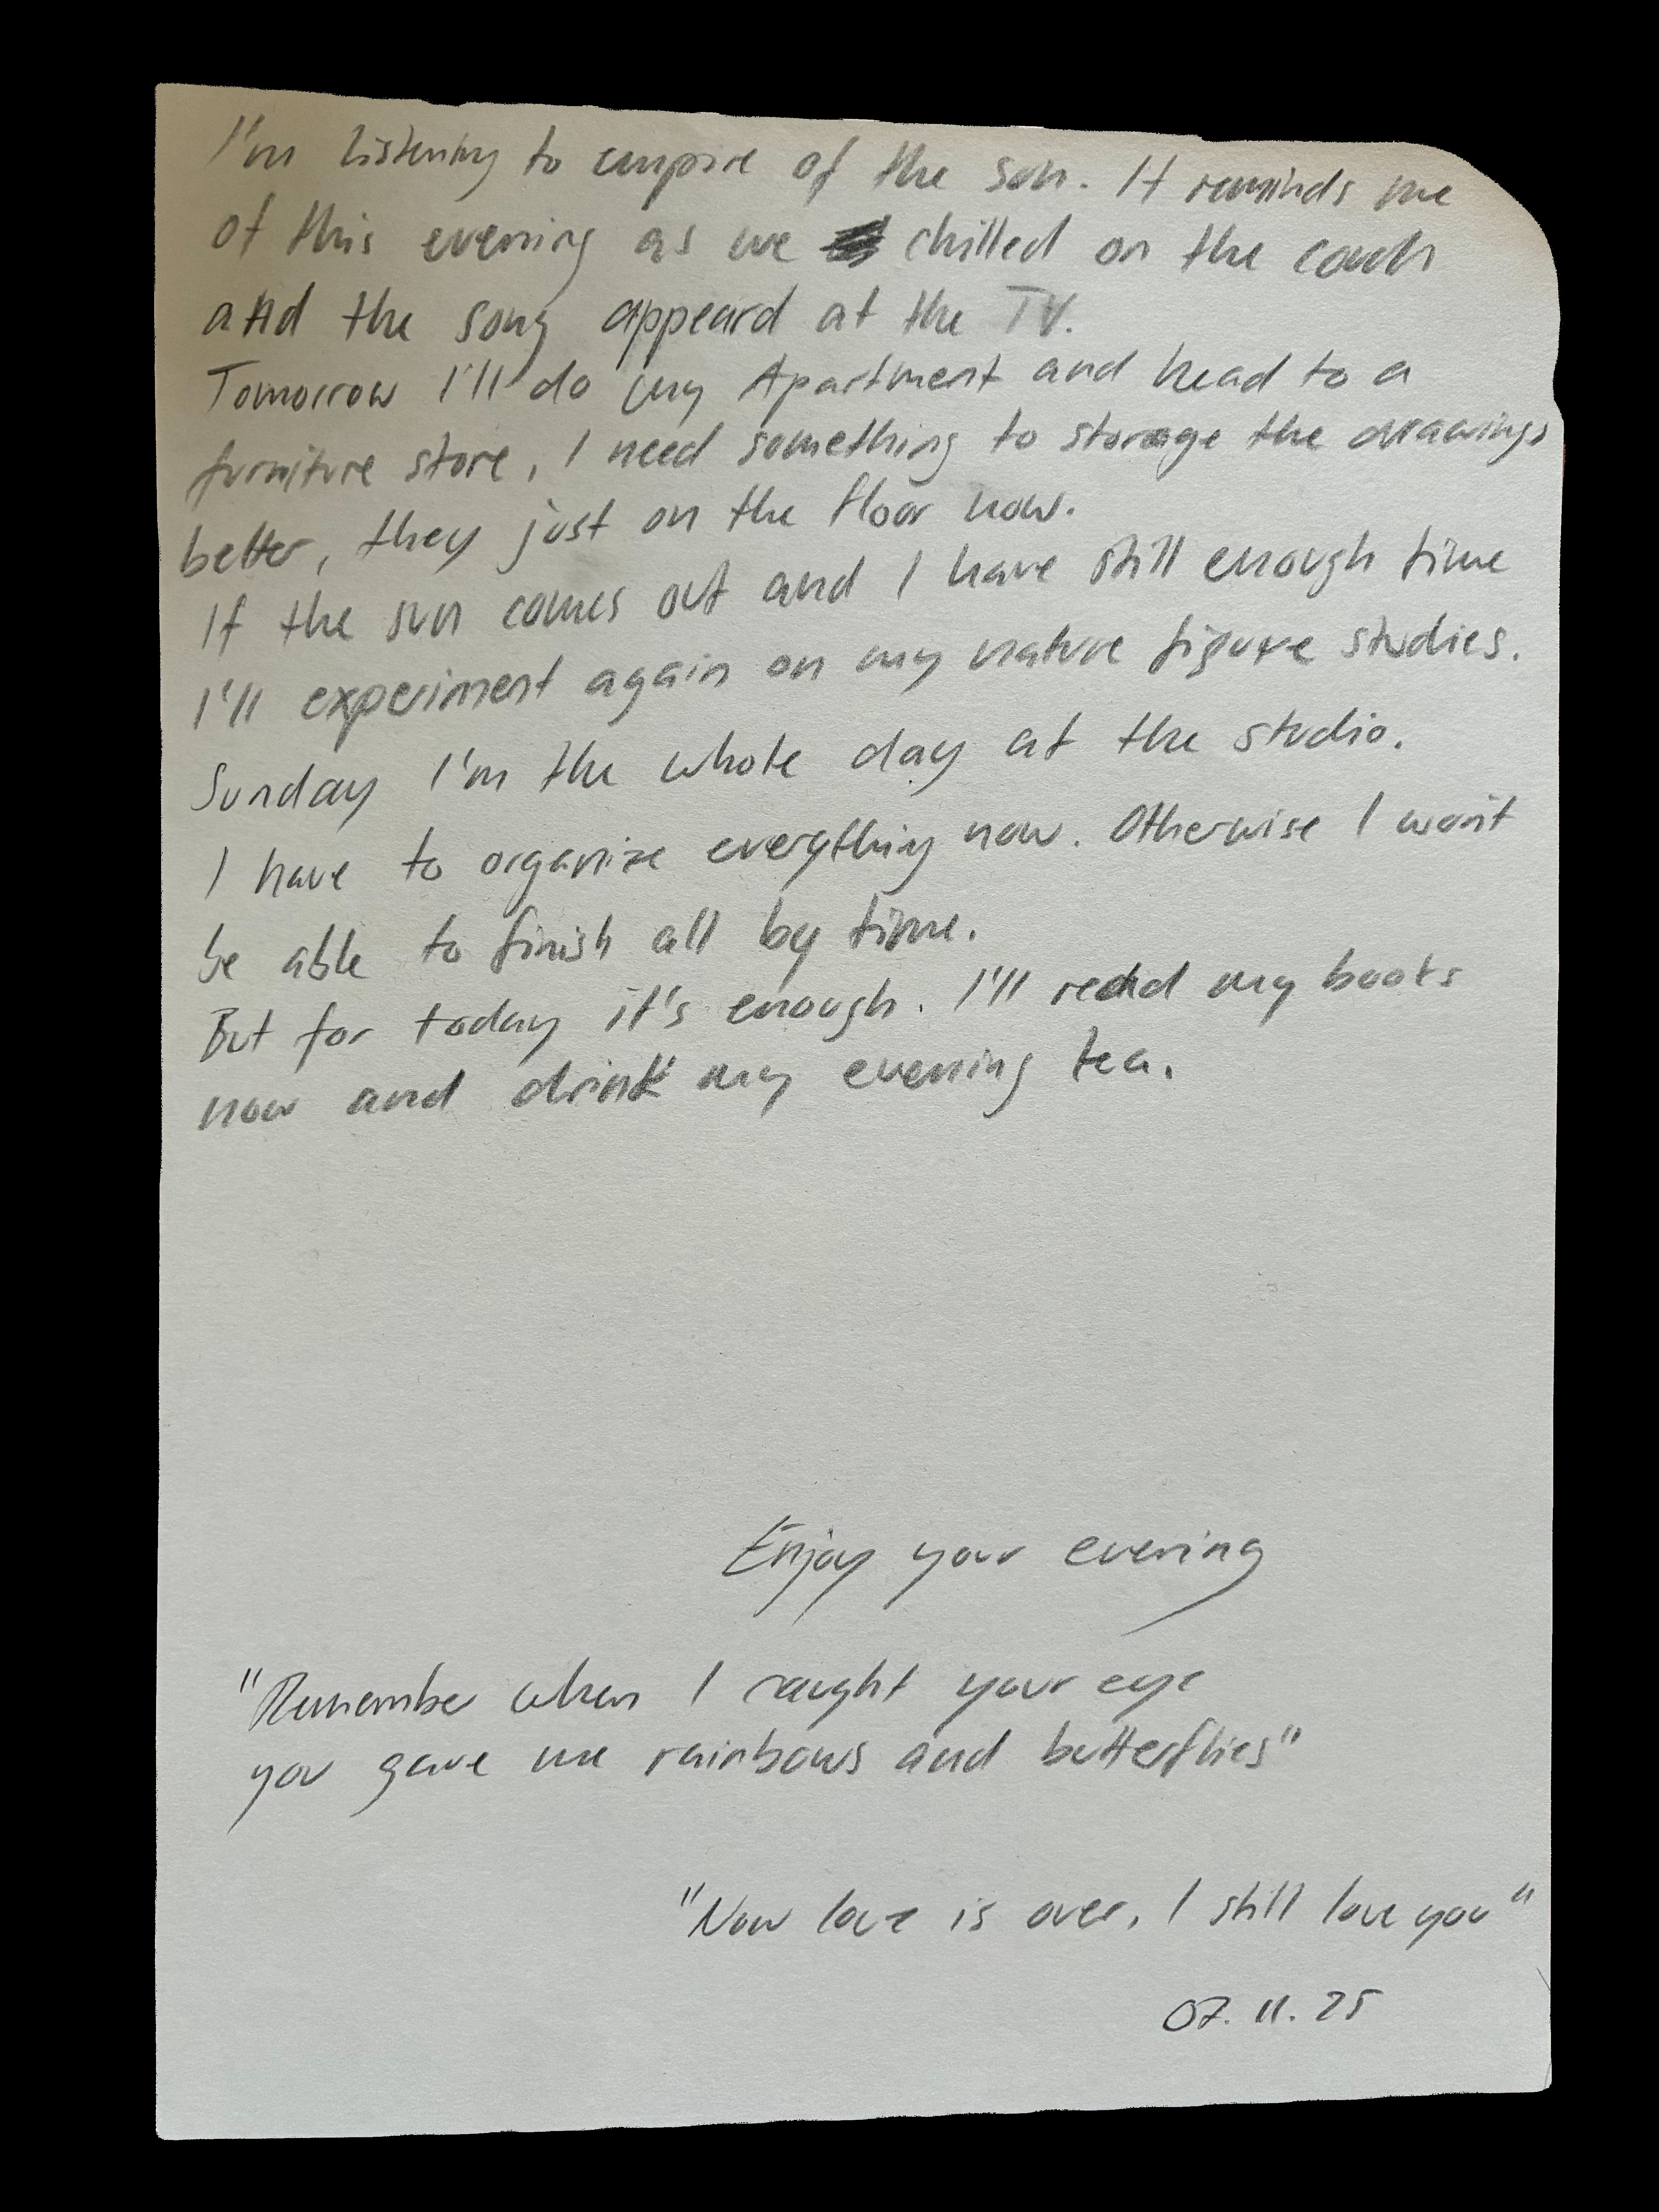 I'm listening to empire of the son. It reminds me
of this evening as we chilled on the couch
and the song appeard at the TV.
Tomorrow I'll do my Apartment and head to a
furniture store, I need something to storage the drawings
better, they just on the floor now.
If the sun comes out and I have still enough time
I'll experiment again on my nature figure studies.
Sunday I'm the whole day at the studio.
I have to organize everything now. Otherwise I won't
be able to finish all by time.
But for today it's enough. I'll read my books
now and drink my evening tea.
Enjoy your evening
"Remember when I caught your eye
you gave me rainbows and butterflies"
"Now love is over, I still love you"
07.11.25